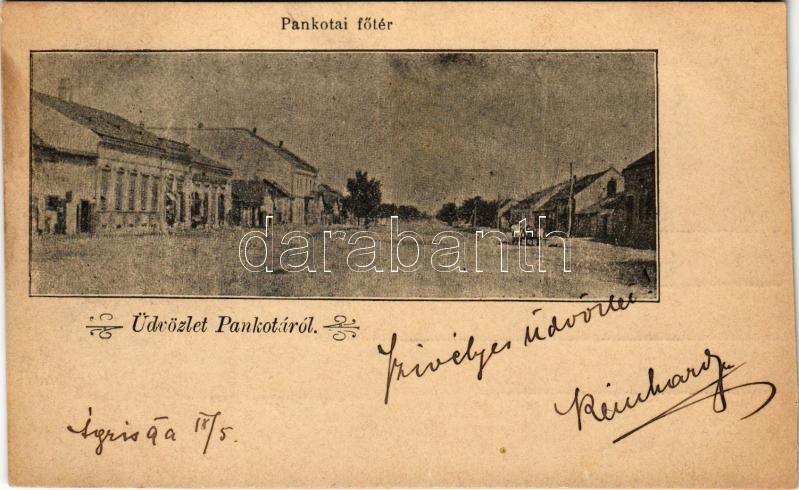 Pankotai főtér
darabanth
Üdvözlet Pankotáról.
Szivélyes üdvözlet!
Reinhard
IX/5.